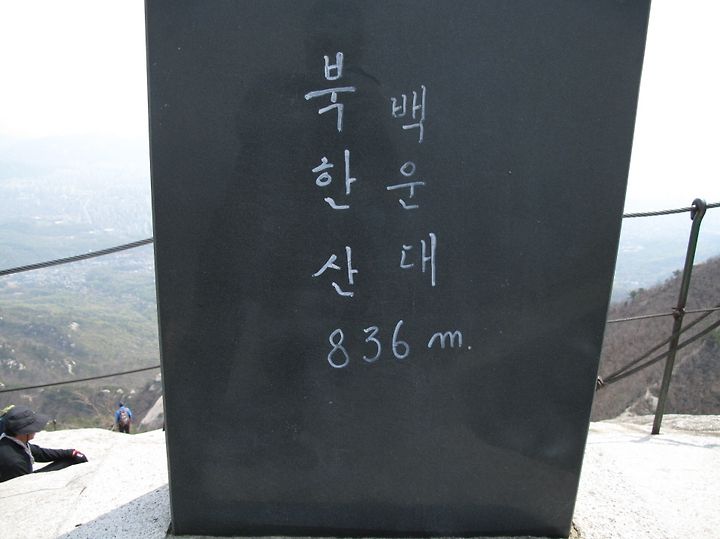 북한산
백운대
836 m.